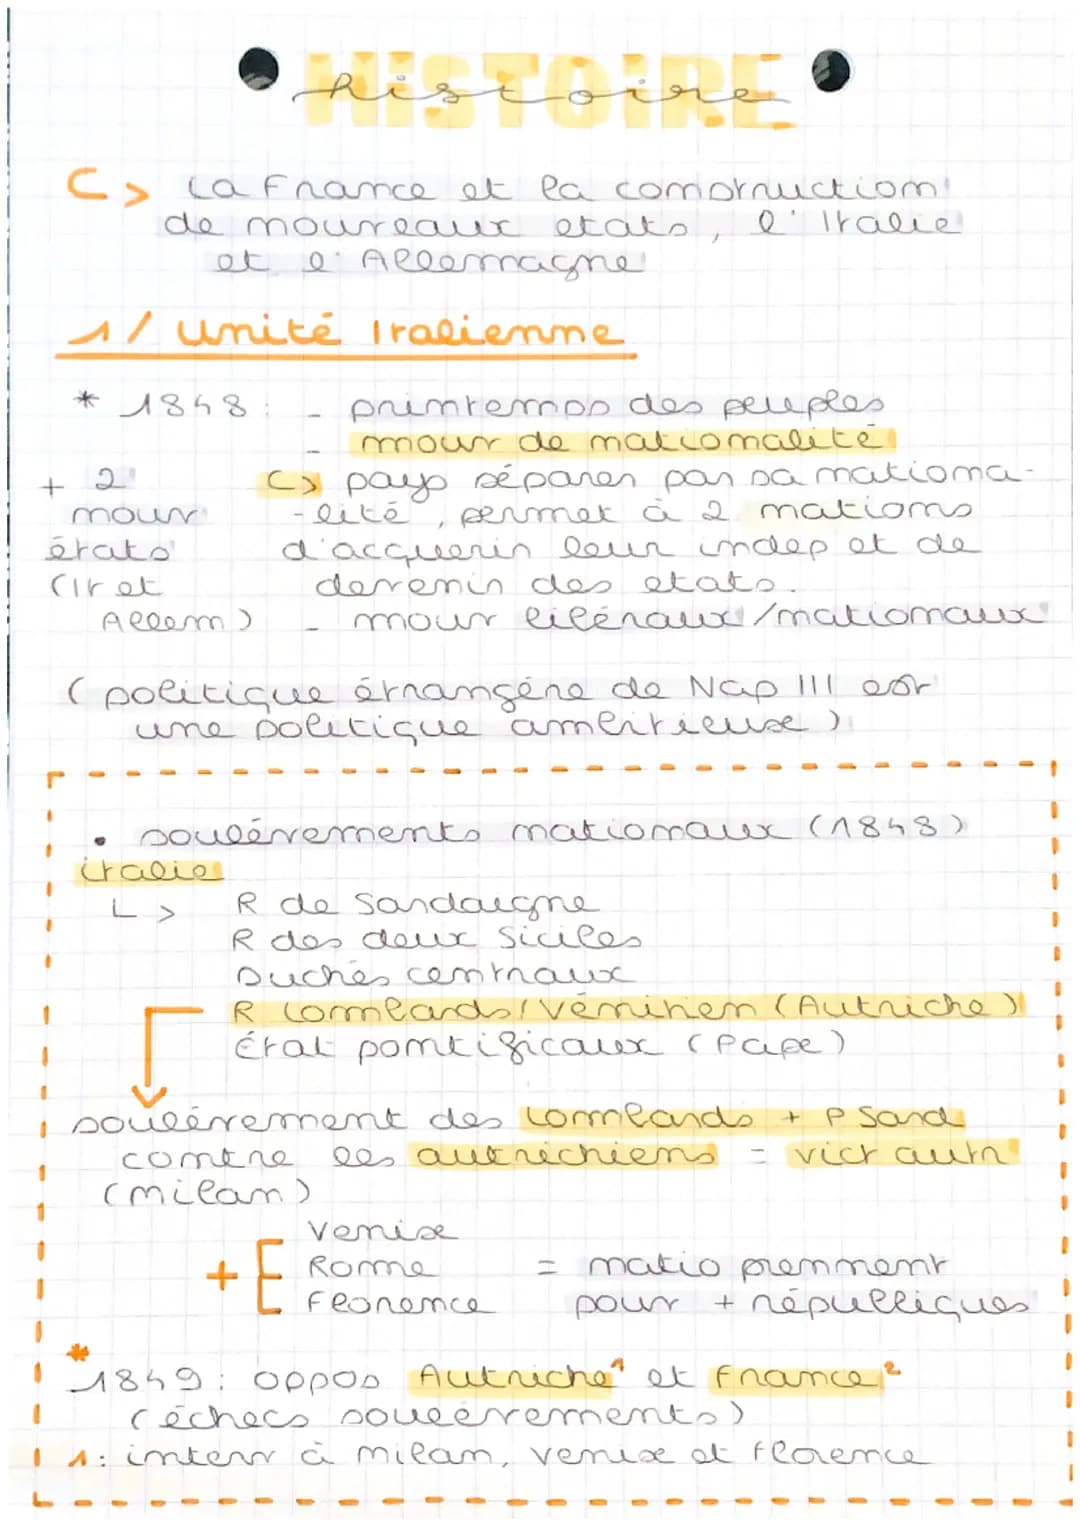 HISTOIRE
histoire
La France et la construction
de nouveaux etats, l'Italie
et l'Allemagne
1/ unité Italienne
* 1848 : - printemps des peuples
- mouv de nationalité
+ 2
mouv
états
(It et
Allem)
pays séparer par sa nationa-
-lité, permet à 2 nations
d'acquerir leur indep et de
devenir des etats.
- mouv libéraux/nationaux
(politique étrangère de Nap III est
une politique ambitieuse)
• soulévements nationaux (1848)
italie
↳ R de Sardaigne
R des deux Siciles
Duchés centraux
R Lombards/Vénitien (Autriche)
État pontificaux (Pape)
soulévement des Lombards + P Sard
contre les autrichiens = vict autr
(milan)
+ [ Venise
Rome
Florence
= natio prennent
pouv + républiques
*
1849 : oppos Autriche¹ et France²
(échecs soulévements)
1 : interv à milan, venise et florence